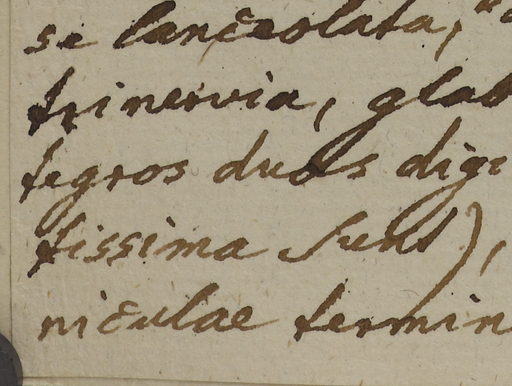 se lanceolata,
trinervia, glab
tegros duos digi
tissima sunt),
niculae termin